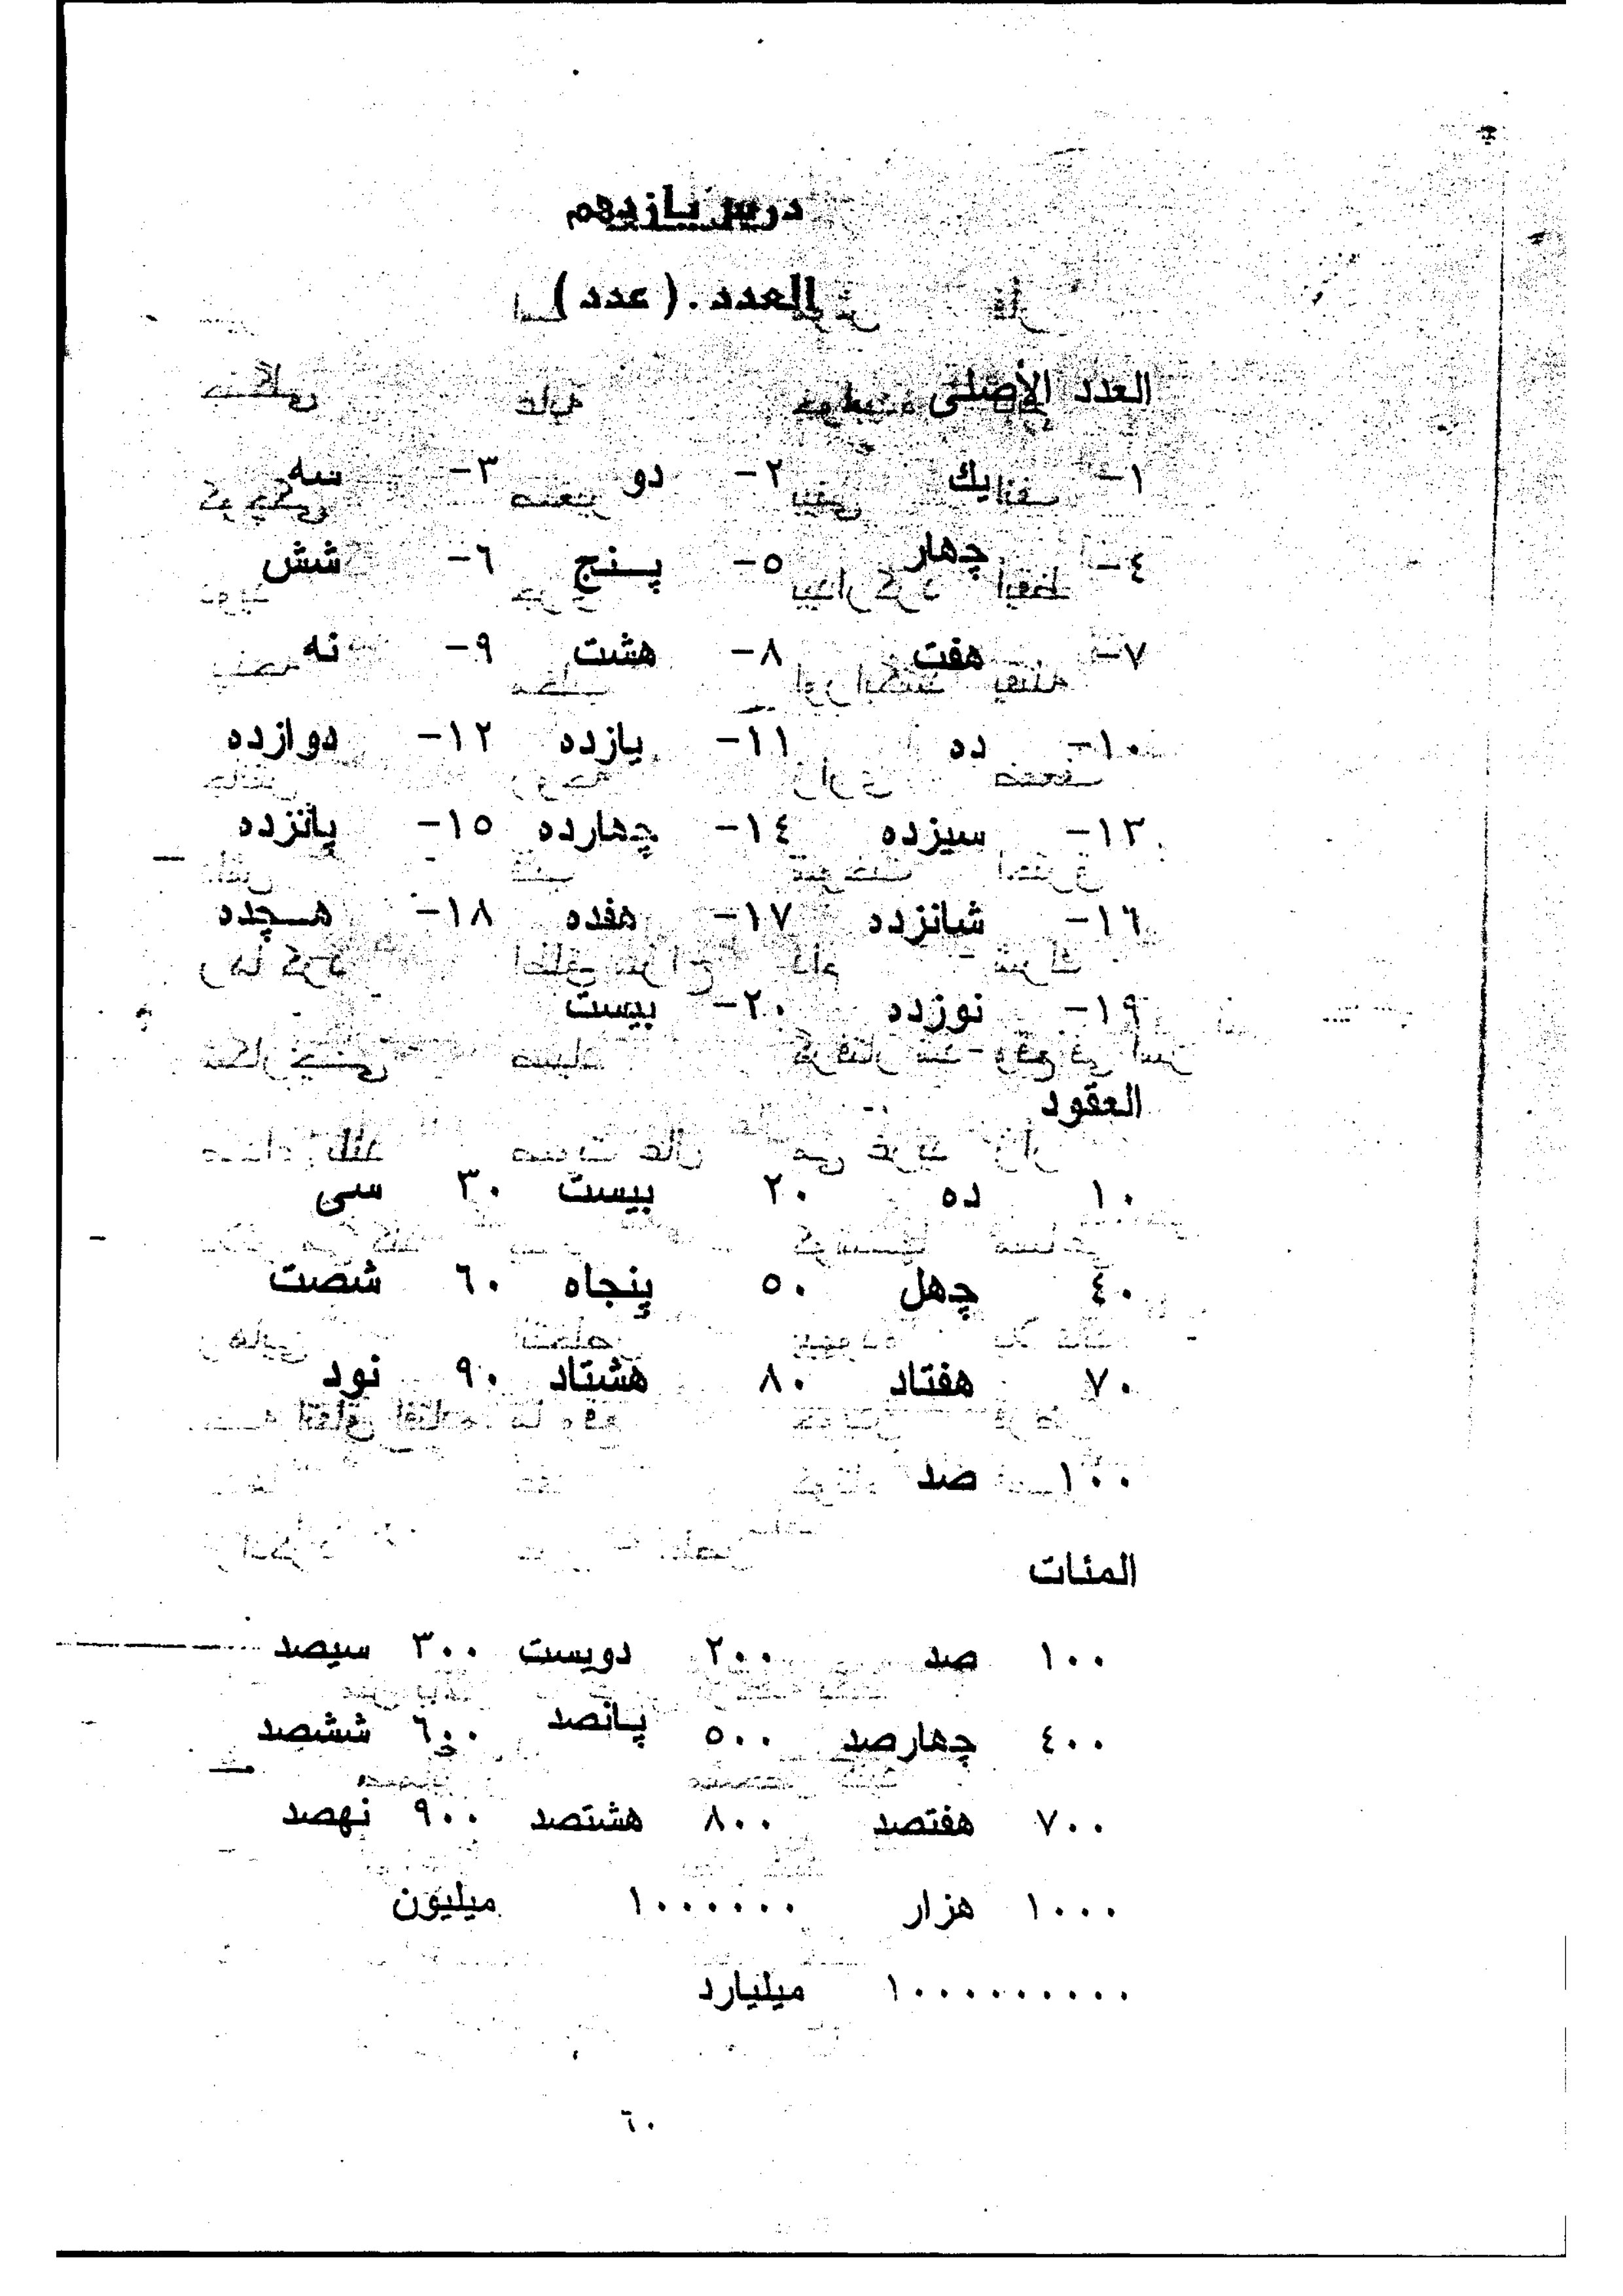 درس يازدهم
العدد . ( عدد )
العدد الأصلى
١- يك ٢- دو ٣- سه
٤- چهار ٥- پــنج ٦- شش
٧- هفت ٨- هشت ٩- نه
١٠- ده ١١- يازده ١٢- دوازده
١٣- سيزده ١٤- چهارده ١٥- پانزده
١٦- شانزده ١٧- هفده ١٨- هــچده
١٩- نوزده ٢٠- بيست
العقود
١٠ ده ٢٠ بيست ٣٠ سى
٤٠ چهل ٥٠ پنجاه ٦٠ شصت
٧٠ هفتاد ٨٠ هشتاد ٩٠ نود
١٠٠ صد
المئات
١٠٠ صد ٢٠٠ دويست ٣٠٠ سيصد
٤٠٠ چهارصد ٥٠٠ پـانصد ٦٠٠ ششصد
٧٠٠ هفتصد ٨٠٠ هشتصد ٩٠٠ نهصد
١٠٠٠ هزار ١٠٠٠٠٠٠ ميليون
١٠٠٠٠٠٠٠٠٠ ميليارد
٦٠